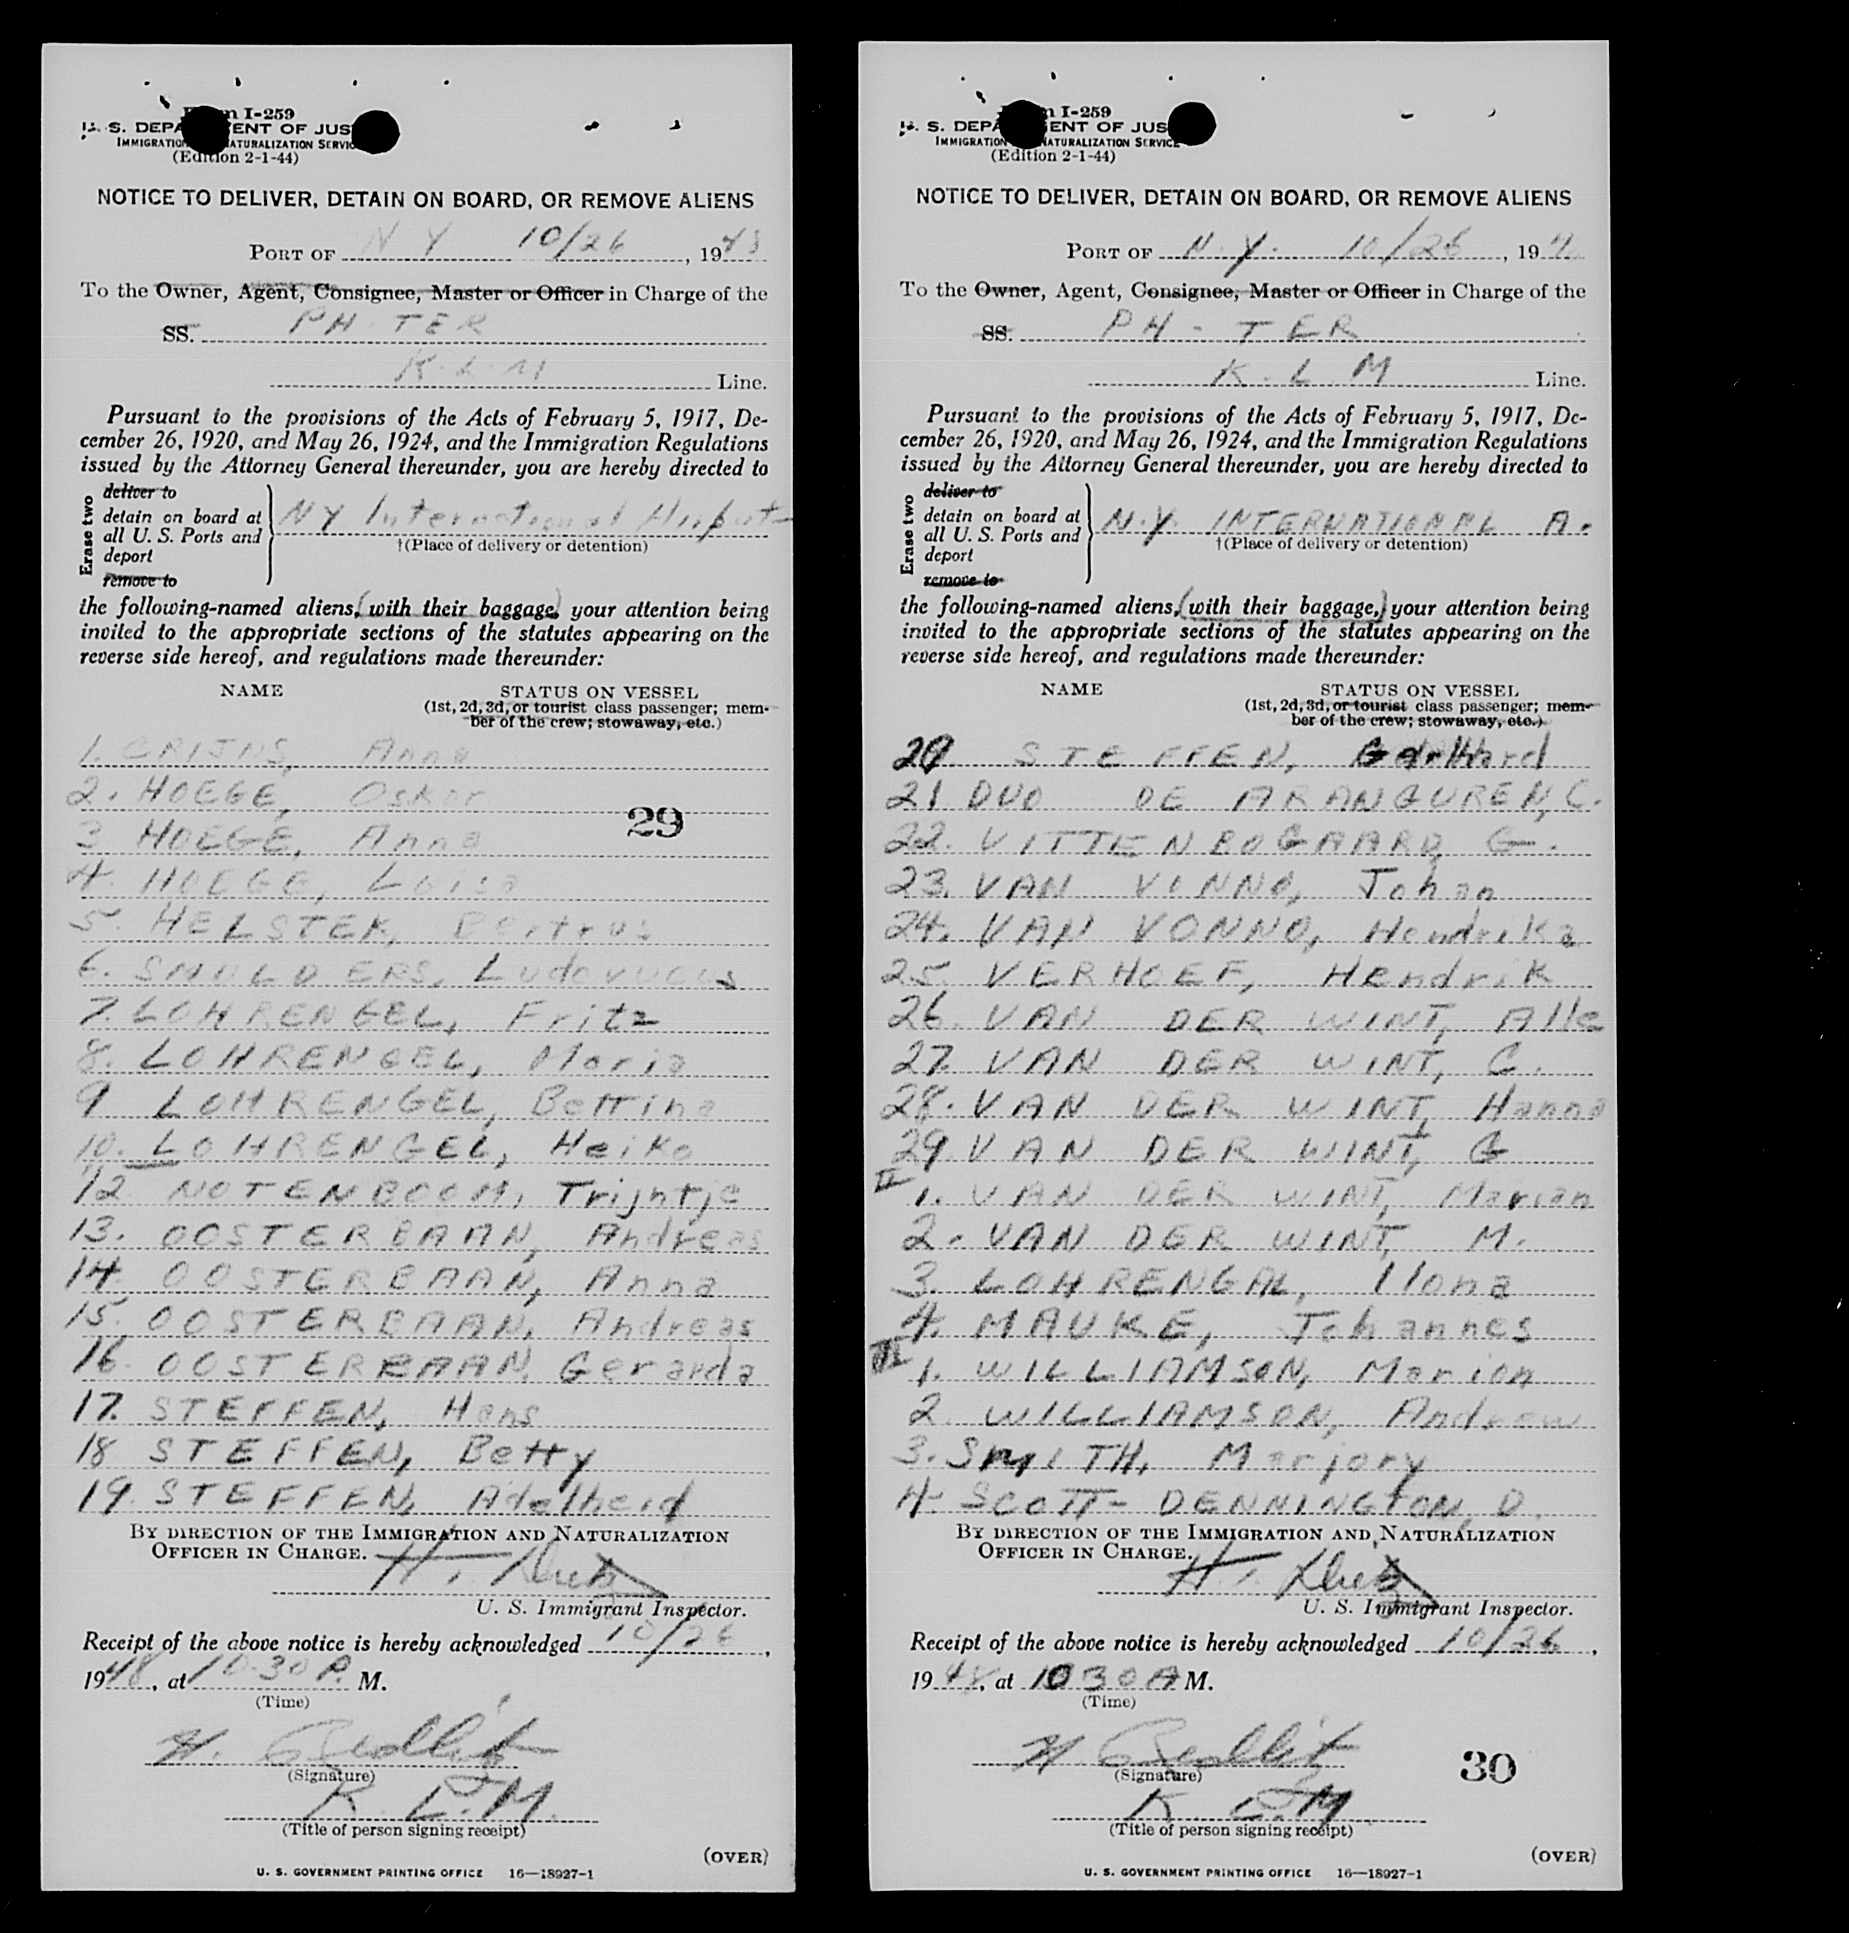 Form I-259
U. S. DEPARTMENT OF JUS
IMMIGRATION NATURALIZATION SERVIC
(Edition 2-1-44)
NOTICE TO DELIVER, DETAIN ON BOARD, OR REMOVE ALIENS
PORT OF N Y 10/26, 1948
To the Owner, Agent, Consignee, Master or Officer in Charge of the
SS. PH-TER
K.L.M Line.
Pursuant to the provisions of the Acts of February 5, 1917, De-
cember 26, 1920, and May 26, 1924, and the Immigration Regulations
issued by the Attorney General thereunder, you are hereby directed to
Erase two
deliver to
detain on board at
all U. S. Ports and
deport
remove to
NY International Airport
†(Place of delivery or detention)
the following-named aliens, (with their baggage) your attention being
invited to the appropriate sections of the statutes appearing on the
reverse side hereof, and regulations made thereunder:
NAME STATUS ON VESSEL
(1st, 2d, 3d, or tourist class passenger; mem-
ber of the crew; stowaway, etc.)
1. CRIJNS, Anna
2. HOEGE, Oskar
29
3 HOEGE, Anna
4. HOEGE, Loisa
5. HELSTEK,
6. SMOLDERS, Ludovucus
7. LOHRENGEL, Fritz
8. LOHRENGEL, Maria
9 LOHRENGEL, Bettina
10. LOHRENGEL, Heiko
12 NOTENBOOM, Trijntje
13. OOSTERBAAN, Andreas
14. OOSTERBAAN, Anna
15. OOSTERBAAN, Andreas
16. OOSTERBAAN, Gerarda
17. STEFFEN, Hans
18 STEFFEN, Betty
19. STEFFEN, Adelheid
BY DIRECTION OF THE IMMIGRATION AND NATURALIZATION
OFFICER IN CHARGE.
U. S. Immigrant Inspector.
Receipt of the above notice is hereby acknowledged 10/26,
1948, at 10:30 P. M.
(Time)
H.
(Signature)
K.L.M.
(Title of person signing receipt)
(OVER)
U. S. GOVERNMENT PRINTING OFFICE 16—18927-1
Form I-259
U. S. DEPARTMENT OF JUS
IMMIGRATION NATURALIZATION SERVICE
(Edition 2-1-44)
NOTICE TO DELIVER, DETAIN ON BOARD, OR REMOVE ALIENS
PORT OF N.Y. 10/26, 194
To the Owner, Agent, Consignee, Master or Officer in Charge of the
SS. PH-TER
K.L.M Line.
Pursuant to the provisions of the Acts of February 5, 1917, De-
cember 26, 1920, and May 26, 1924, and the Immigration Regulations
issued by the Attorney General thereunder, you are hereby directed to
Erase two
deliver to
detain on board at
all U. S. Ports and
deport
remove to
N.Y. INTERNATIONAL A.
†(Place of delivery or detention)
the following-named aliens, (with their baggage,) your attention being
invited to the appropriate sections of the statutes appearing on the
reverse side hereof, and regulations made thereunder:
NAME STATUS ON VESSEL
(1st, 2d, 3d, or tourist class passenger; mem-
ber of the crew; stowaway, etc.)
20. STEFFEN,
21 DUO DE ARANGUREN, C.
22. VITTENBOGAARD, G.
23. VAN VONNO, Johan
24. VAN VONNO, Hendrika
25. VERHOEF, Hendrik
26. VAN DER WINT, Alle
27. VAN DER WINT, C.
28. VAN DER WINT, Hanna
29. VAN DER WINT, G
II 1. VAN DER WINT, Marian
2. VAN DER WINT, M.
3. LOHRENGAL, Ilona
4. MAUKE, Johannes
III 1. WILLIAMSON, Marion
2. WILLIAMSON, Andrew
3. SMITH, Marjory
4. SCOTT-DENNINGTON, D.
BY DIRECTION OF THE IMMIGRATION AND NATURALIZATION
OFFICER IN CHARGE.
U. S. Immigrant Inspector.
Receipt of the above notice is hereby acknowledged 10/26,
1948, at 1030 A M.
(Time)
H.
(Signature)
30
K.L.M
(Title of person signing receipt)
(OVER)
U. S. GOVERNMENT PRINTING OFFICE 16—18927-1